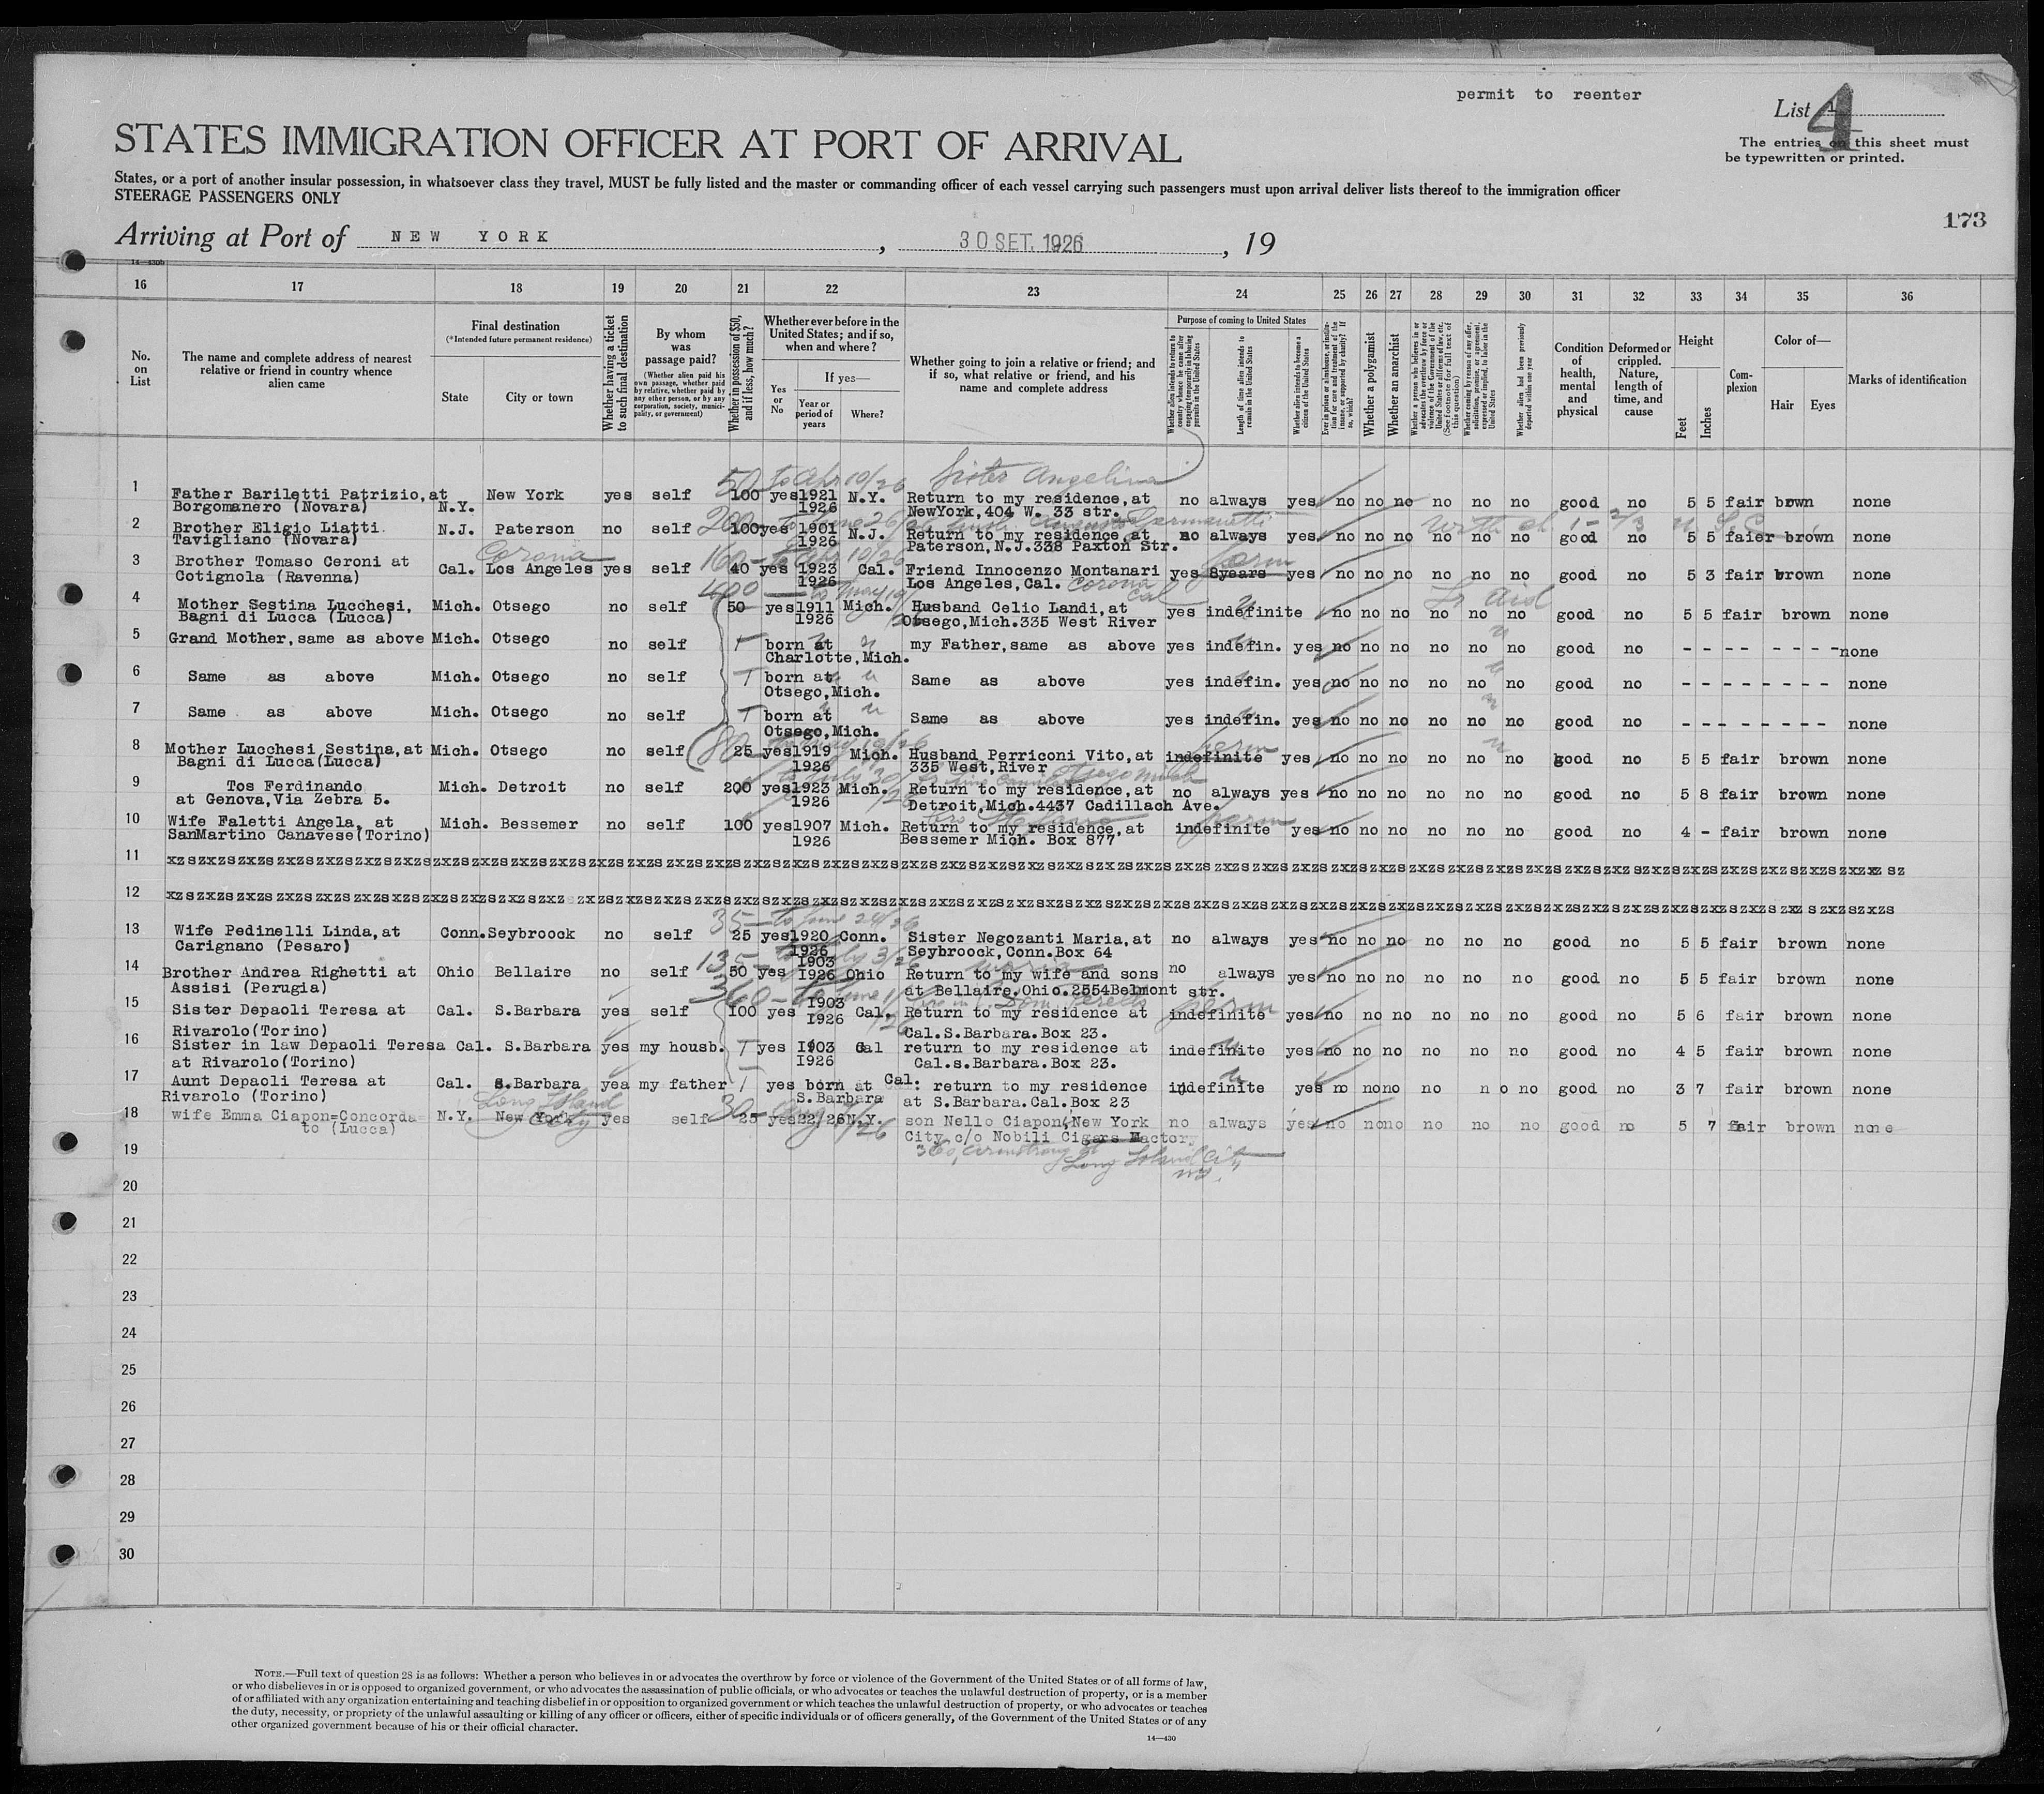 permit to reenter
List 4
The entries on this sheet must
be typewritten or printed.
STATES IMMIGRATION OFFICER AT PORT OF ARRIVAL
States, or a port of another insular possession, in whatsoever class they travel, MUST be fully listed and the master or commanding officer of each vessel carrying such passengers must upon arrival deliver lists thereof to the immigration officer
STEERAGE PASSENGERS ONLY
173
Arriving at Port of NEW YORK , 30 SET. 1926 , 19
14—430b
16 17 18 19 20 21 22 23 24 25 26 27 28 29 30 31 32 33 34 35 36
No. on List
The name and complete address of nearest relative or friend in country whence alien came
Final destination
(*Intended future permanent residence)
State
City or town
Whether having a ticket to such final destination
By whom was passage paid?
(Whether alien paid his own passage, whether paid by relative, whether paid by any other person, or by any corporation, society, municipality, or government)
Whether in possession of $50, and if less, how much?
Whether ever before in the United States; and if so, when and where?
Yes or No
If yes—
Year or period of years
Where?
Whether going to join a relative or friend; and if so, what relative or friend, and his name and complete address
Purpose of coming to United States
Length of time alien intends to remain in the United States
Whether alien intends to become a citizen of the United States
Whether a polygamist
Whether an anarchist
Whether alien had been previously deported within one year
Condition of health, mental and physical
Deformed or crippled. Nature, length of time, and cause
Height
Feet
Inches
Complexion
Color of—
Hair
Eyes
Marks of identification
Sister Angelina
50 to Apr 10/26
1 Father Bariletti Patrizio, at New York yes self 100 yes 1921 N.Y. Return to my residence, at no always yes no no no no no no good no 5 5 fair brown none
Borgomanero (Novara) N.Y. 1926 NewYork, 404 W. 33 str.
2 Brother Eligio Liatti N.J. Paterson no self 100 yes 1901 N.J. Return to my residence, at no always yes no no no no no no good no 5 5 faier brown none
Tavigliano (Novara) 1926 Paterson, N.J. 338 Paxton Str.
Corona 160 to Apr 10/26 perm
3 Brother Tomaso Ceroni at Cal. Los Angeles yes self 40 yes 1923 Cal. Friend Innocenzo Montanari yes 8years yes no no no no no no good no 5 3 fair brown none
Cotignola (Ravenna) 1926 Los Angeles, Cal. Corona Cal
400
4 Mother Sestina Lucchesi, Mich. Otsego no self 50 yes 1911 Mich. Husband Celio Landi, at yes indefinite no no no no no no good no 5 5 fair brown none
Bagni di Lucca (Lucca) 1926 Otsego, Mich. 335 West River
5 Grand Mother, same as above Mich. Otsego no self born at my Father, same as above yes indefin. yes no no no no no no good no - - - - - - - - none
Charlotte, Mich.
6 Same as above Mich. Otsego no self born at Same as above yes indefin. yes no no no no no no good no - - - - - - - - none
Otsego, Mich.
7 Same as above Mich. Otsego no self born at Same as above yes indefin. yes no no no no no no good no - - - - - - - - none
Otsego, Mich.
8 Mother Lucchesi Sestina, at Mich. Otsego no self 25 yes 1919 Mich. Husband Perriconi Vito, at indefinite yes no no no no no no good no 5 5 fair brown none
Bagni di Lucca (Lucca) 1926 335 West, River Otsego Mich
9 Tos Ferdinando Mich. Detroit no self 200 yes 1923 Mich. Return to my residence, at no always yes no no no no no no good no 5 8 fair brown none
at Genova, Via Zebra 5. 1926 Detroit, Mich. 4437 Cadillach Ave.
10 Wife Faletti Angela, at Mich. Bessemer no self 100 yes 1907 Mich. Return to my residence, at indefinite yes no no no no no no good no 4 - fair brown none
SanMartino Canavese (Torino) 1926 Bessemer Mich. Box 877
11
12
35 to June 24/26
13 Wife Pedinelli Linda, at Conn. Seybroock no self 25 yes 1920 Conn. Sister Negozanti Maria, at no always yes no no no no no no good no 5 5 fair brown none
Carignano (Pesaro) 1926 Seybroock, Conn. Box 64
135 Maria
14 Brother Andrea Righetti at Ohio Bellaire no self 50 yes 1903 1926 Ohio Return to my wife and sons no always yes no no no no no no good no 5 5 fair brown none
Assisi (Perugia) at Bellaire. Ohio. 2554 Belmont str.
360
15 Sister Depaoli Teresa at Cal. S.Barbara yes self 100 yes 1903 1926 Cal. Return to my residence at indefinite yes no no no no no no good no 5 6 fair brown none
Rivarolo (Torino) Cal. S.Barbara. Box 23.
16 Sister in law Depaoli Teresa Cal. S.Barbara yes my housb. yes 1903 Cal return to my residence at indefinite yes no no no no no no good no 4 5 fair brown none
at Rivarolo (Torino) 1926 Cal. s.Barbara. Box 23.
17 Aunt Depaoli Teresa at Cal. S.Barbara yea my father yes born at Cal: return to my residence indefinite yes no no no no no no good no 3 7 fair brown none
Rivarolo (Torino) S.Barbara at S.Barbara. Cal. Box 23
Long Island City 30
18 wife Emma Ciapon=Concorda= N.Y. New York yes self 25 yes 22/26 N.Y. son Nello Ciapon, New York no always yes no no no no no no good no 5 7 fair brown none
to (Lucca) City c/o Nobili Cigars Factor
Long Island City
N.Y.
19
20
21
22
23
24
25
26
27
28
29
30
NOTE.—Full text of question 28 is as follows: Whether a person who believes in or advocates the overthrow by force or violence of the Government of the United States or of all forms of law,
or who disbelieves in or is opposed to organized government, or who advocates the assassination of public officials, or who advocates or teaches the unlawful destruction of property, or is a member
of or affiliated with any organization entertaining and teaching disbelief in or opposition to organized government or which teaches the unlawful destruction of property, or who advocates or teaches
the duty, necessity, or propriety of the unlawful assaulting or killing of any officer or officers, either of specific individuals or of officers generally, of the Government of the United States or of any
other organized government because of his or their official character.
14—430